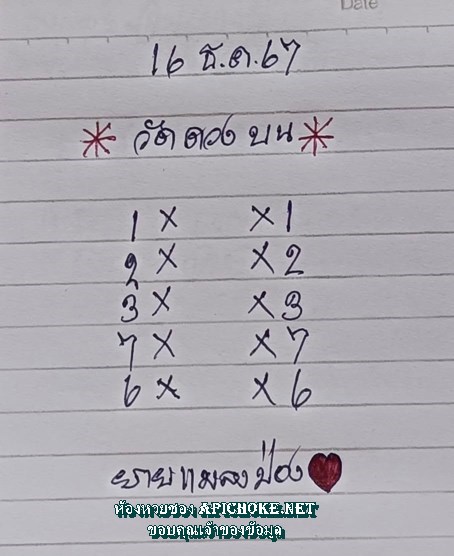 Date
16 ธ.ค.67
* วัดดวง บน *
1 × × 1
2 × × 2
3 × × 3
7 × × 7
6 × × 6
ยายแมงป่อง
ห้องหวยซอง APICHOKE.NET
ขอบคุณเจ้าของข้อมูล